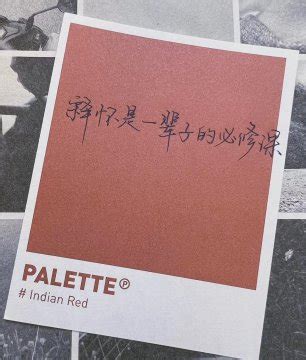 释怀是一辈子的必修课
PALETTE℗
# Indian Red